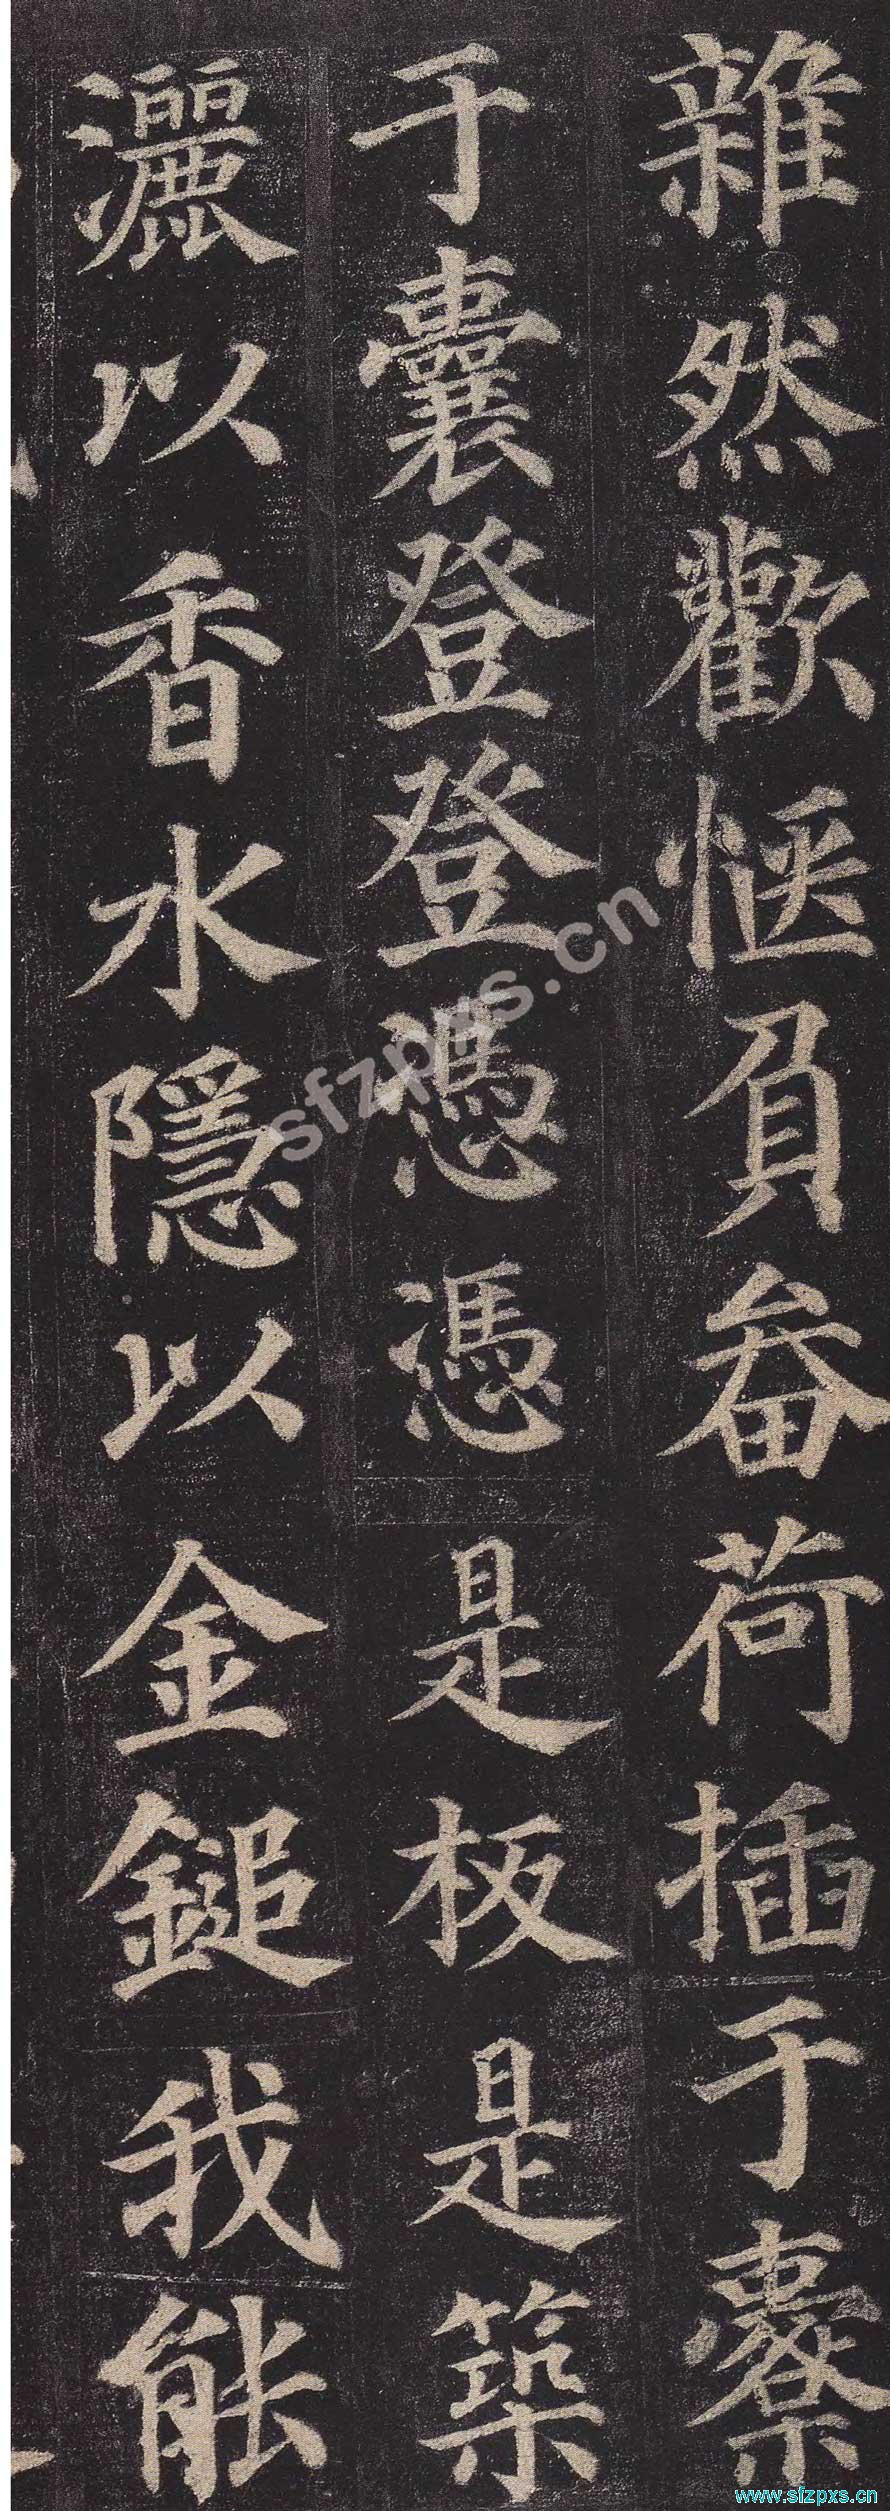 雜然歡愜負畚荷插于橐
于囊登登憑憑是板是築
灑以香水隱以金鎚我能
sfzpxs.cn
www.sfzpxs.cn